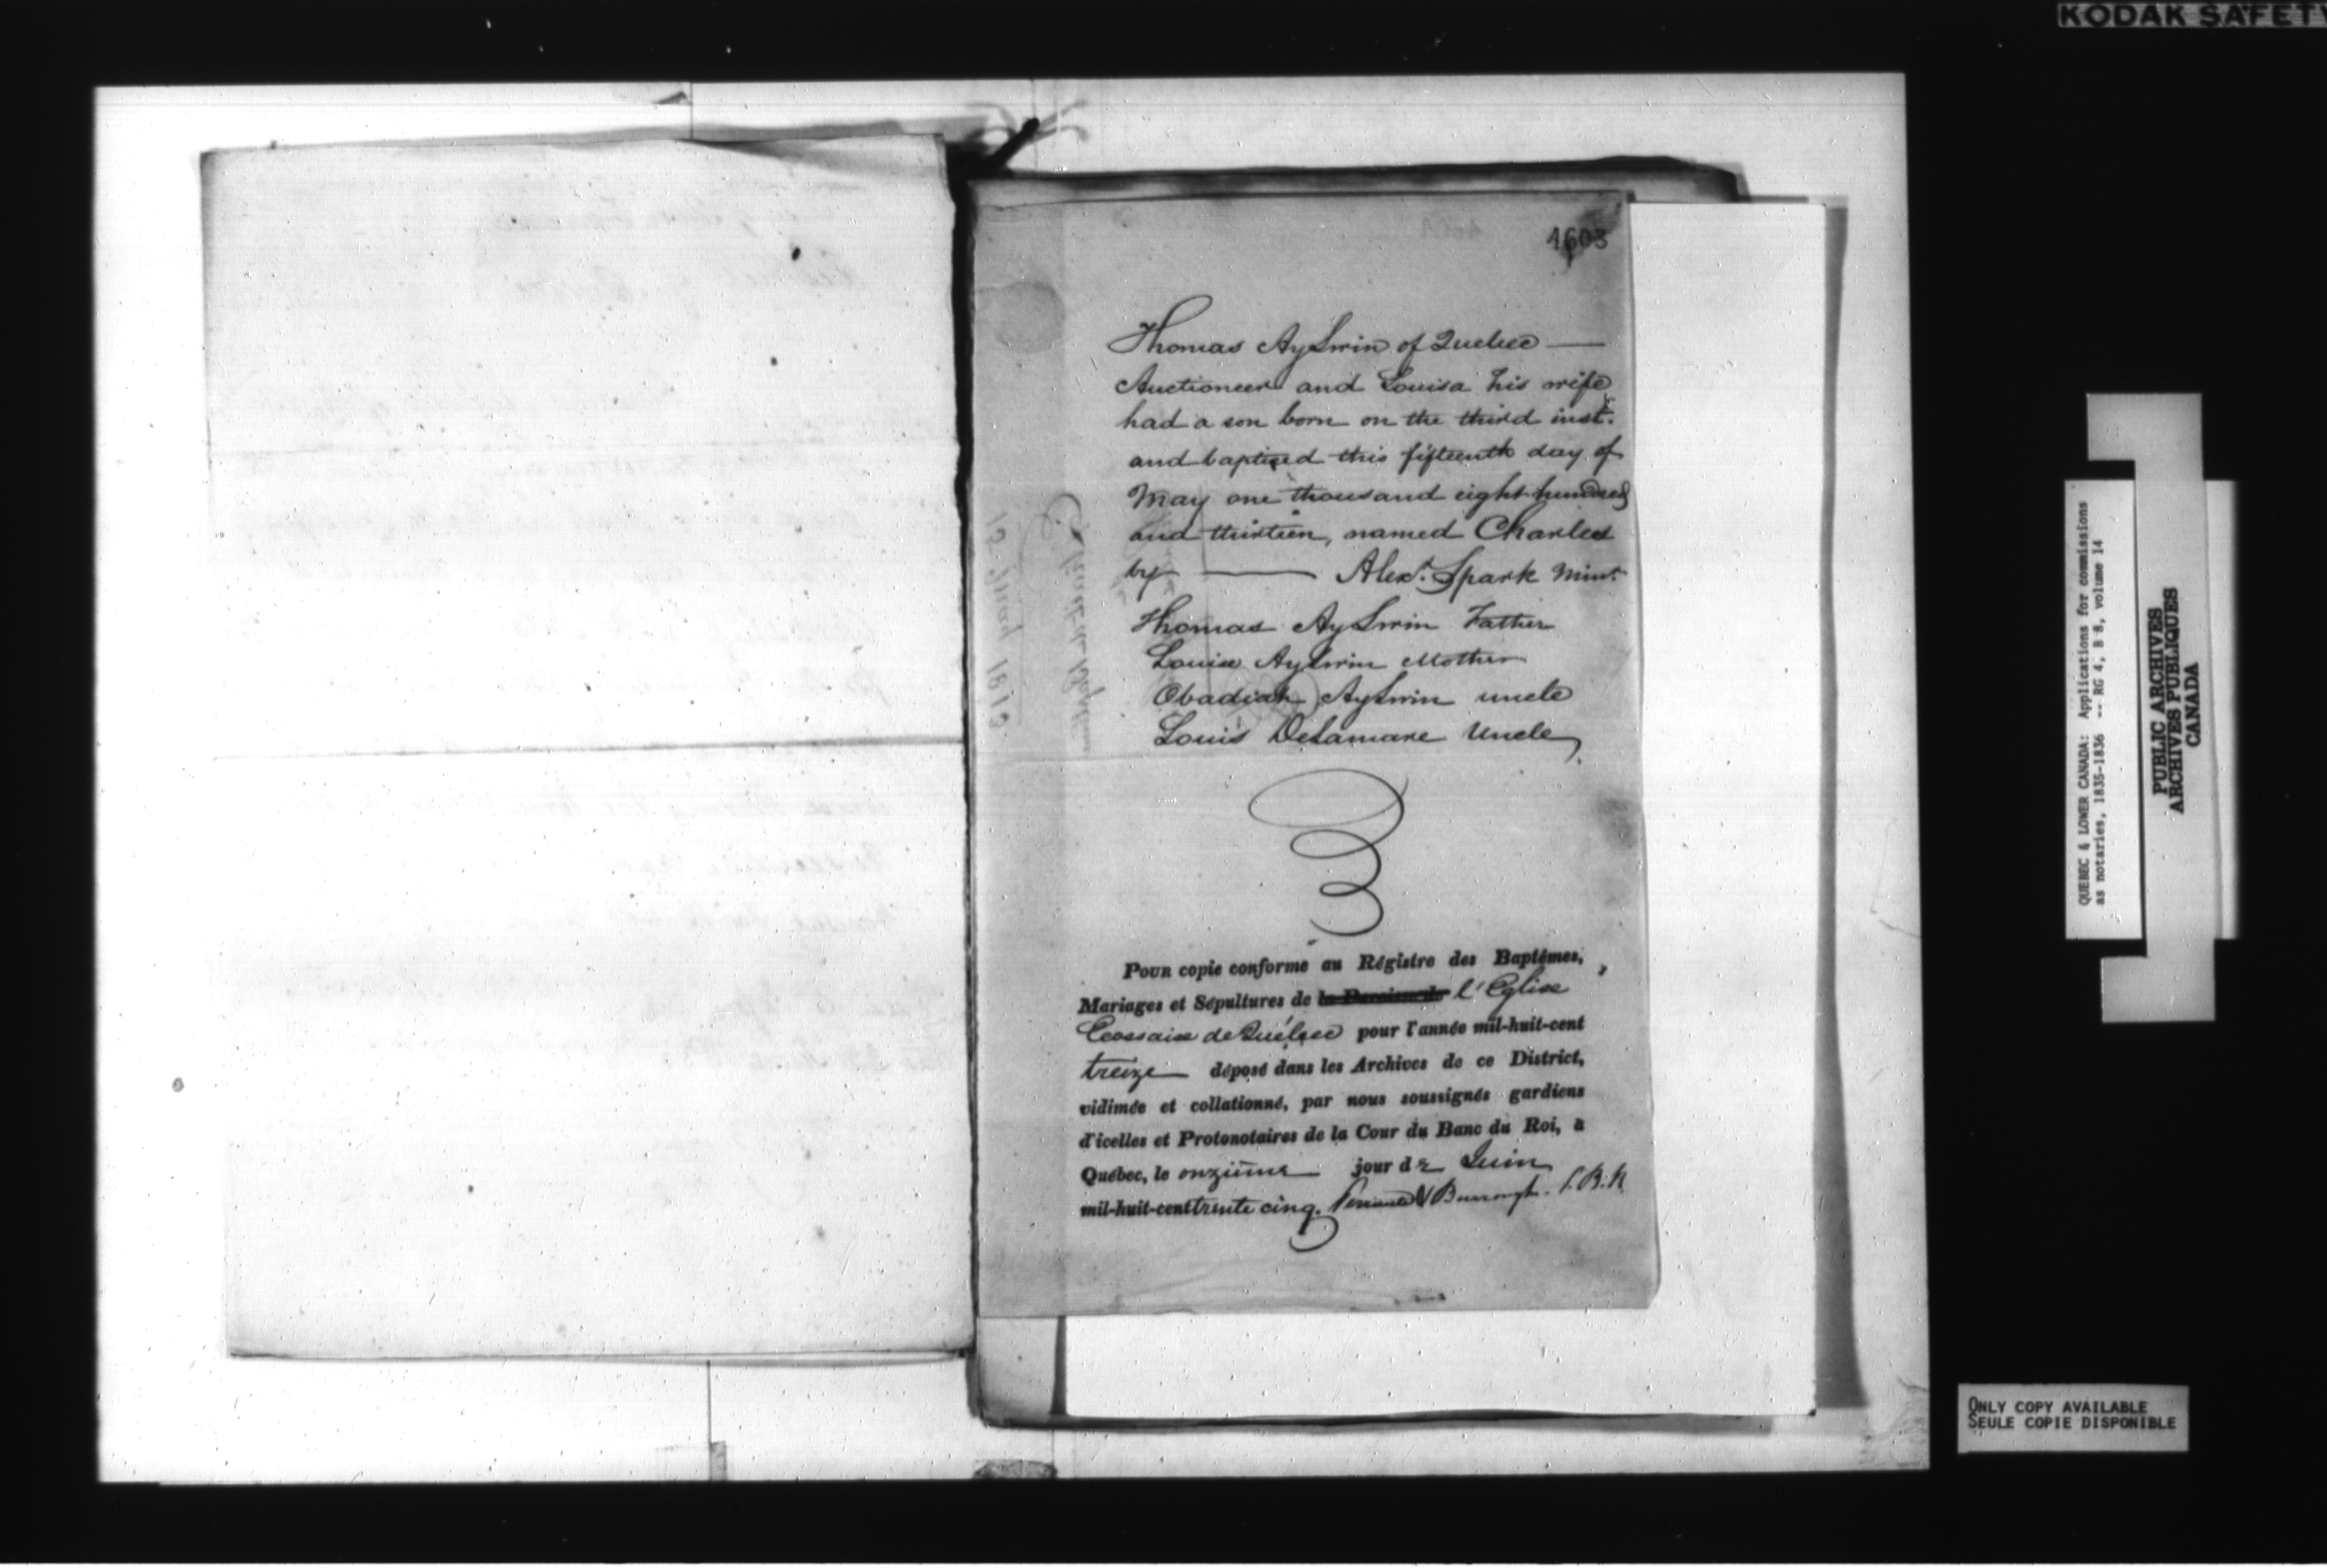 KODAK SAFETY
4603
Thomas Aylwin of Quebec —
Auctioneer and Louisa his wife
had a son born on the third inst.
and baptized this fifteenth day of
May one thousand eight hundred
and thirteen, named Charles
by — Alexr. Spark Minr.
Thomas Aylwin Father
Louisa Aylwin Mother
Obadiah Aylwin uncle
Louis Delamare Uncle
Pour copie conforme au Régistre des Baptêmes,
Mariages et Sépultures de la Paroisse de l'Eglise
Ecossaise de Québec pour l'année mil-huit-cent
treize déposé dans les Archives de ce District,
vidimée et collationné, par nous soussignés gardiens
d'icelles et Protonotaires de la Cour du Banc du Roi, à
Québec, le onzième jour de Juin
mil-huit-cent trente cinq. Perrault & Burroughs. P.B.R
QUEBEC & LOWER CANADA: Applications for commissions
as notaries, 1835-1836 -- RG 4, B 8, volume 14
PUBLIC ARCHIVES
ARCHIVES PUBLIQUES
CANADA
ONLY COPY AVAILABLE
SEULE COPIE DISPONIBLE